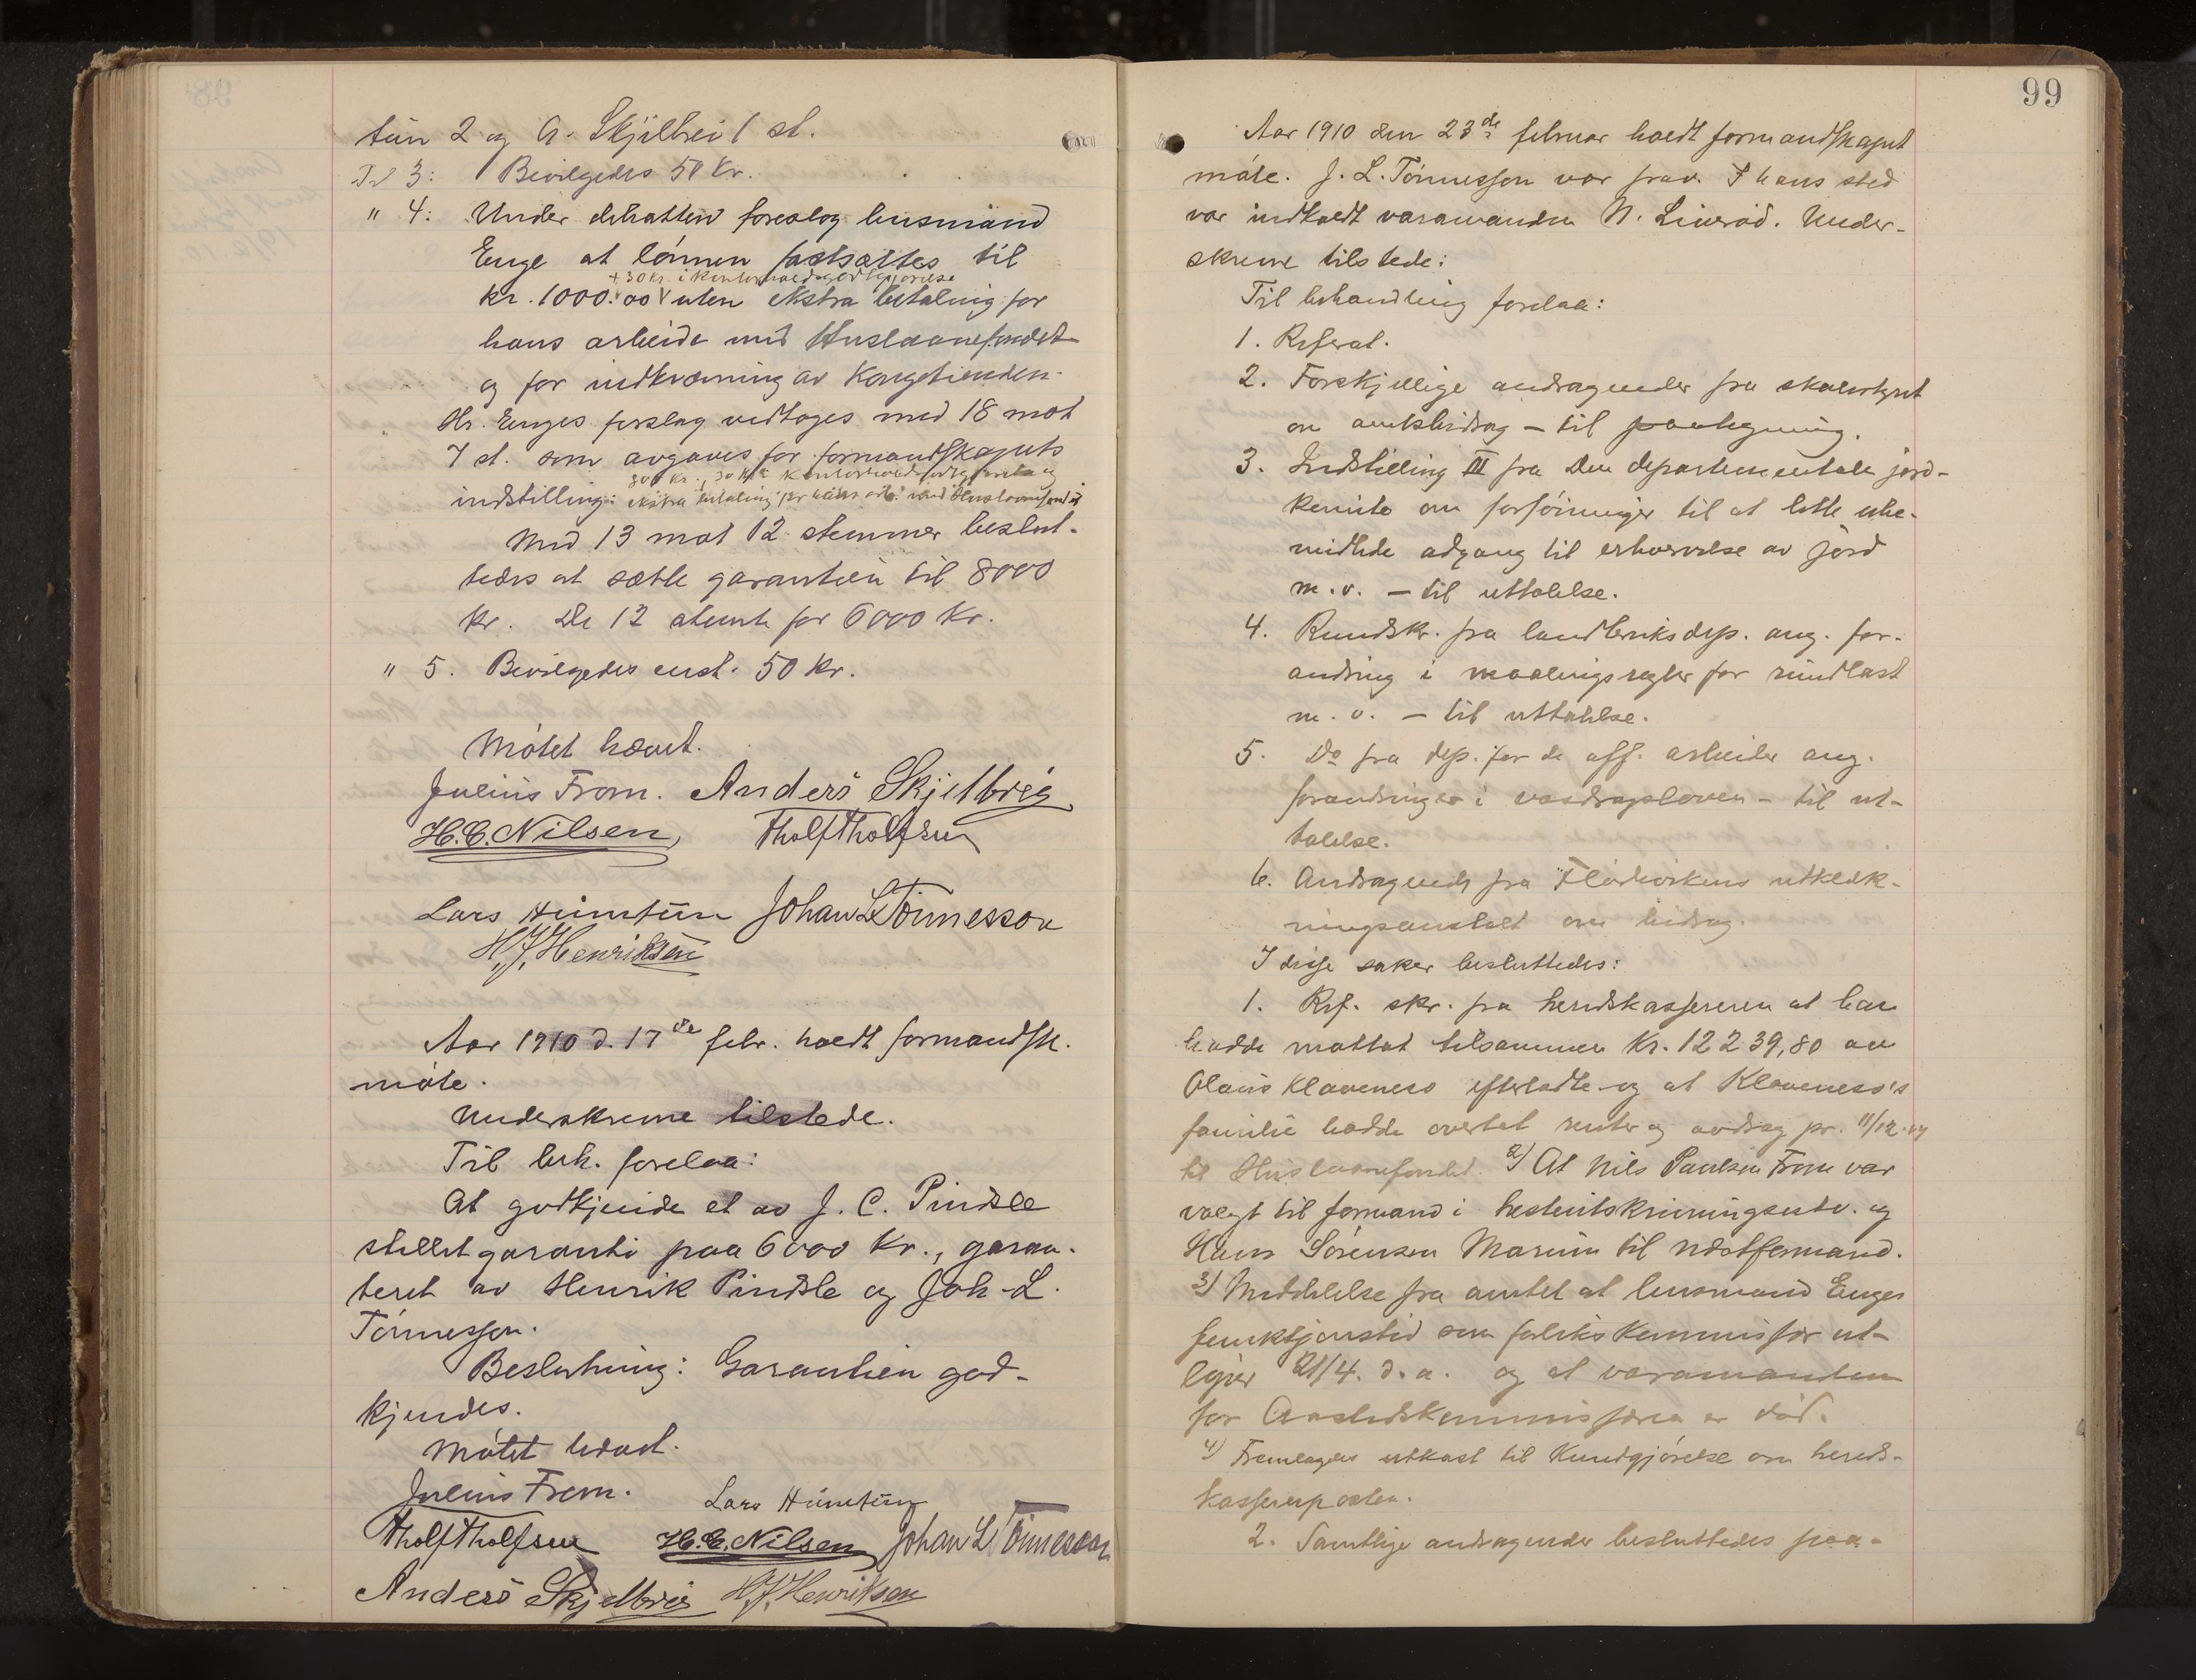 tun 2 og A. Skjelbrei 1 st.
Til 3: Bevilgedes 50 kr.
" 4: Under debatten foreslog lensmand
Enge at lønnen fastsattes til
+ 30 kr. i kontorholdsgodtgjørelse
kr. 1000.00 uten ekstra betaling for
hans arbeide med Huslaanefondet
og for indkrævning av Kongetienden.
Hr. Enges forslag vedtoges med 18 mot
7 st. som avgaves for formandskapets
800 kr., 30 kr. kontorholdsgodtgjørelse og
indstilling: ekstra betaling for hans arb. med Huslaanefondet
Med 13 mot 12 stemmer beslut-
tedes at sætte garantien til 8000
kr. De 12 stemte for 6000 kr.
" 5. Bevilgedes enst. 50 kr.
Møtet hævet.
Julius From. Anders Skjelbrei
H. C. Nilsen, Tholf Tholfsen
Lars Himtun Johan L Tønnesson
H. J. Henriksen
Aar 1910 d. 17de febr. holdt formandsk.
møte.
Underskrevne tilstede.
Til beh. forelaa:
At godkjende et av J. C. Pindsle
stillet garanti paa 6000 kr., garan-
teret av Henrik Pindsle og Joh. L.
Tønnesson.
Beslutning: Garantien god-
kjendes.
Møtet hævet.
Julius From. Lars Himtun
Tholf Tholfsen H. C. Nilsen Johan L Tønnesson
Anders Skjelbrei H. J. Henriksen
99
Aar 1910 den 23de februar holdt formandskapet
møte. J. L. Tønnesson var frav. I hans sted
var indkaldt varamanden N. Liverød. Under-
skrevne tilstede:
Til behandling forelaa:
1. Referat.
2. Forskjellige andragender fra skolestyret
om amtsbidrag – til paategning.
3. Indstilling III fra Den departementale jord-
komite om forføininger til at lette ube-
midlede adgang til erhvervelse av jord
m. v. – til uttalelse.
4. Rundskr. fra landbruksdep. ang. for-
andring i maalingsregler for rundlast
m. v. – til uttalelse.
5. Do fra dep. for de off. arbeider ang.
forandringer i vasdragsloven – til ut-
talelse.
6. Andragende fra Flødevikens utklæk-
ningsanstalt om bidrag.
I disse saker besluttedes:
1. Ref. skr. fra herredskassereren at han
hadde mottat tilsammen Kr. 12239,80 av
Olaus Klaveness efterladte og at Klaveness's
familie hadde overtat renter og avdrag pr. 11/12.09
til Huslaanefondet. 2) At Nils Paulsen From var
valgt til formand i hesteutskrivningsutv. og
Hans Sørensen Marum til viceformand.
3) Meddelelse fra amtet at lensmand Enges
funktjonstid som forlikskommissær ut-
løper 21/4. d. a. og at varamanden
for Aastedskommissæren er død.
4) Fremlagdes utkast til kundgjørelse om hereds-
kassererposten.
2. Samtlige andragender besluttedes paa-